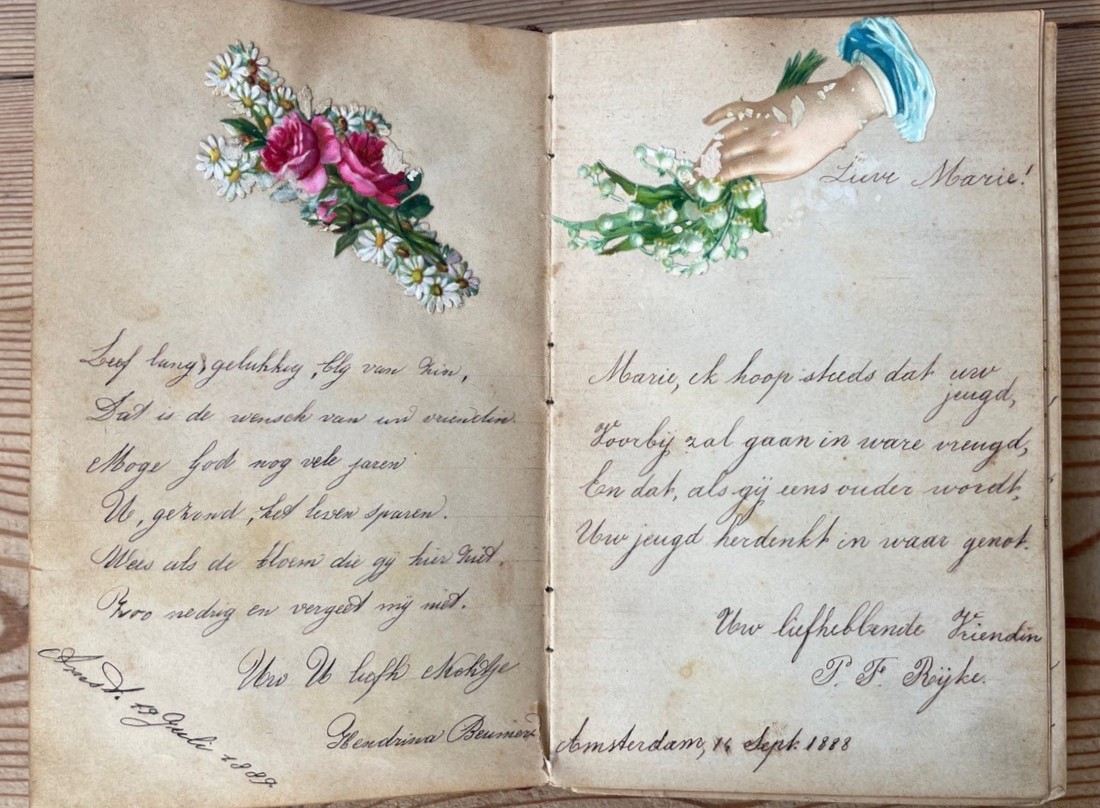 Leef lang, gelukkig, bly van zin,
Dat is de wensch van uw vriendin.
Moge God nog vele jaren
U, gezond, het leven sparen.
Wees als de bloem die gy hier ziet,
Zoo nedrig en vergeet mij niet.
Uw U liefh
Hendrina
Amst. 19 Juli 1889
Lieve Marie!
Marie, ik hoop steeds dat uw
jeugd,
Voorbij zal gaan in ware vreugd,
En dat, als gij eens ouder wordt,
Uw jeugd herdenkt in waar genot.
Uw liefhebbende Vriendin
P. F. Rijke.
Amsterdam, Sept. 1888